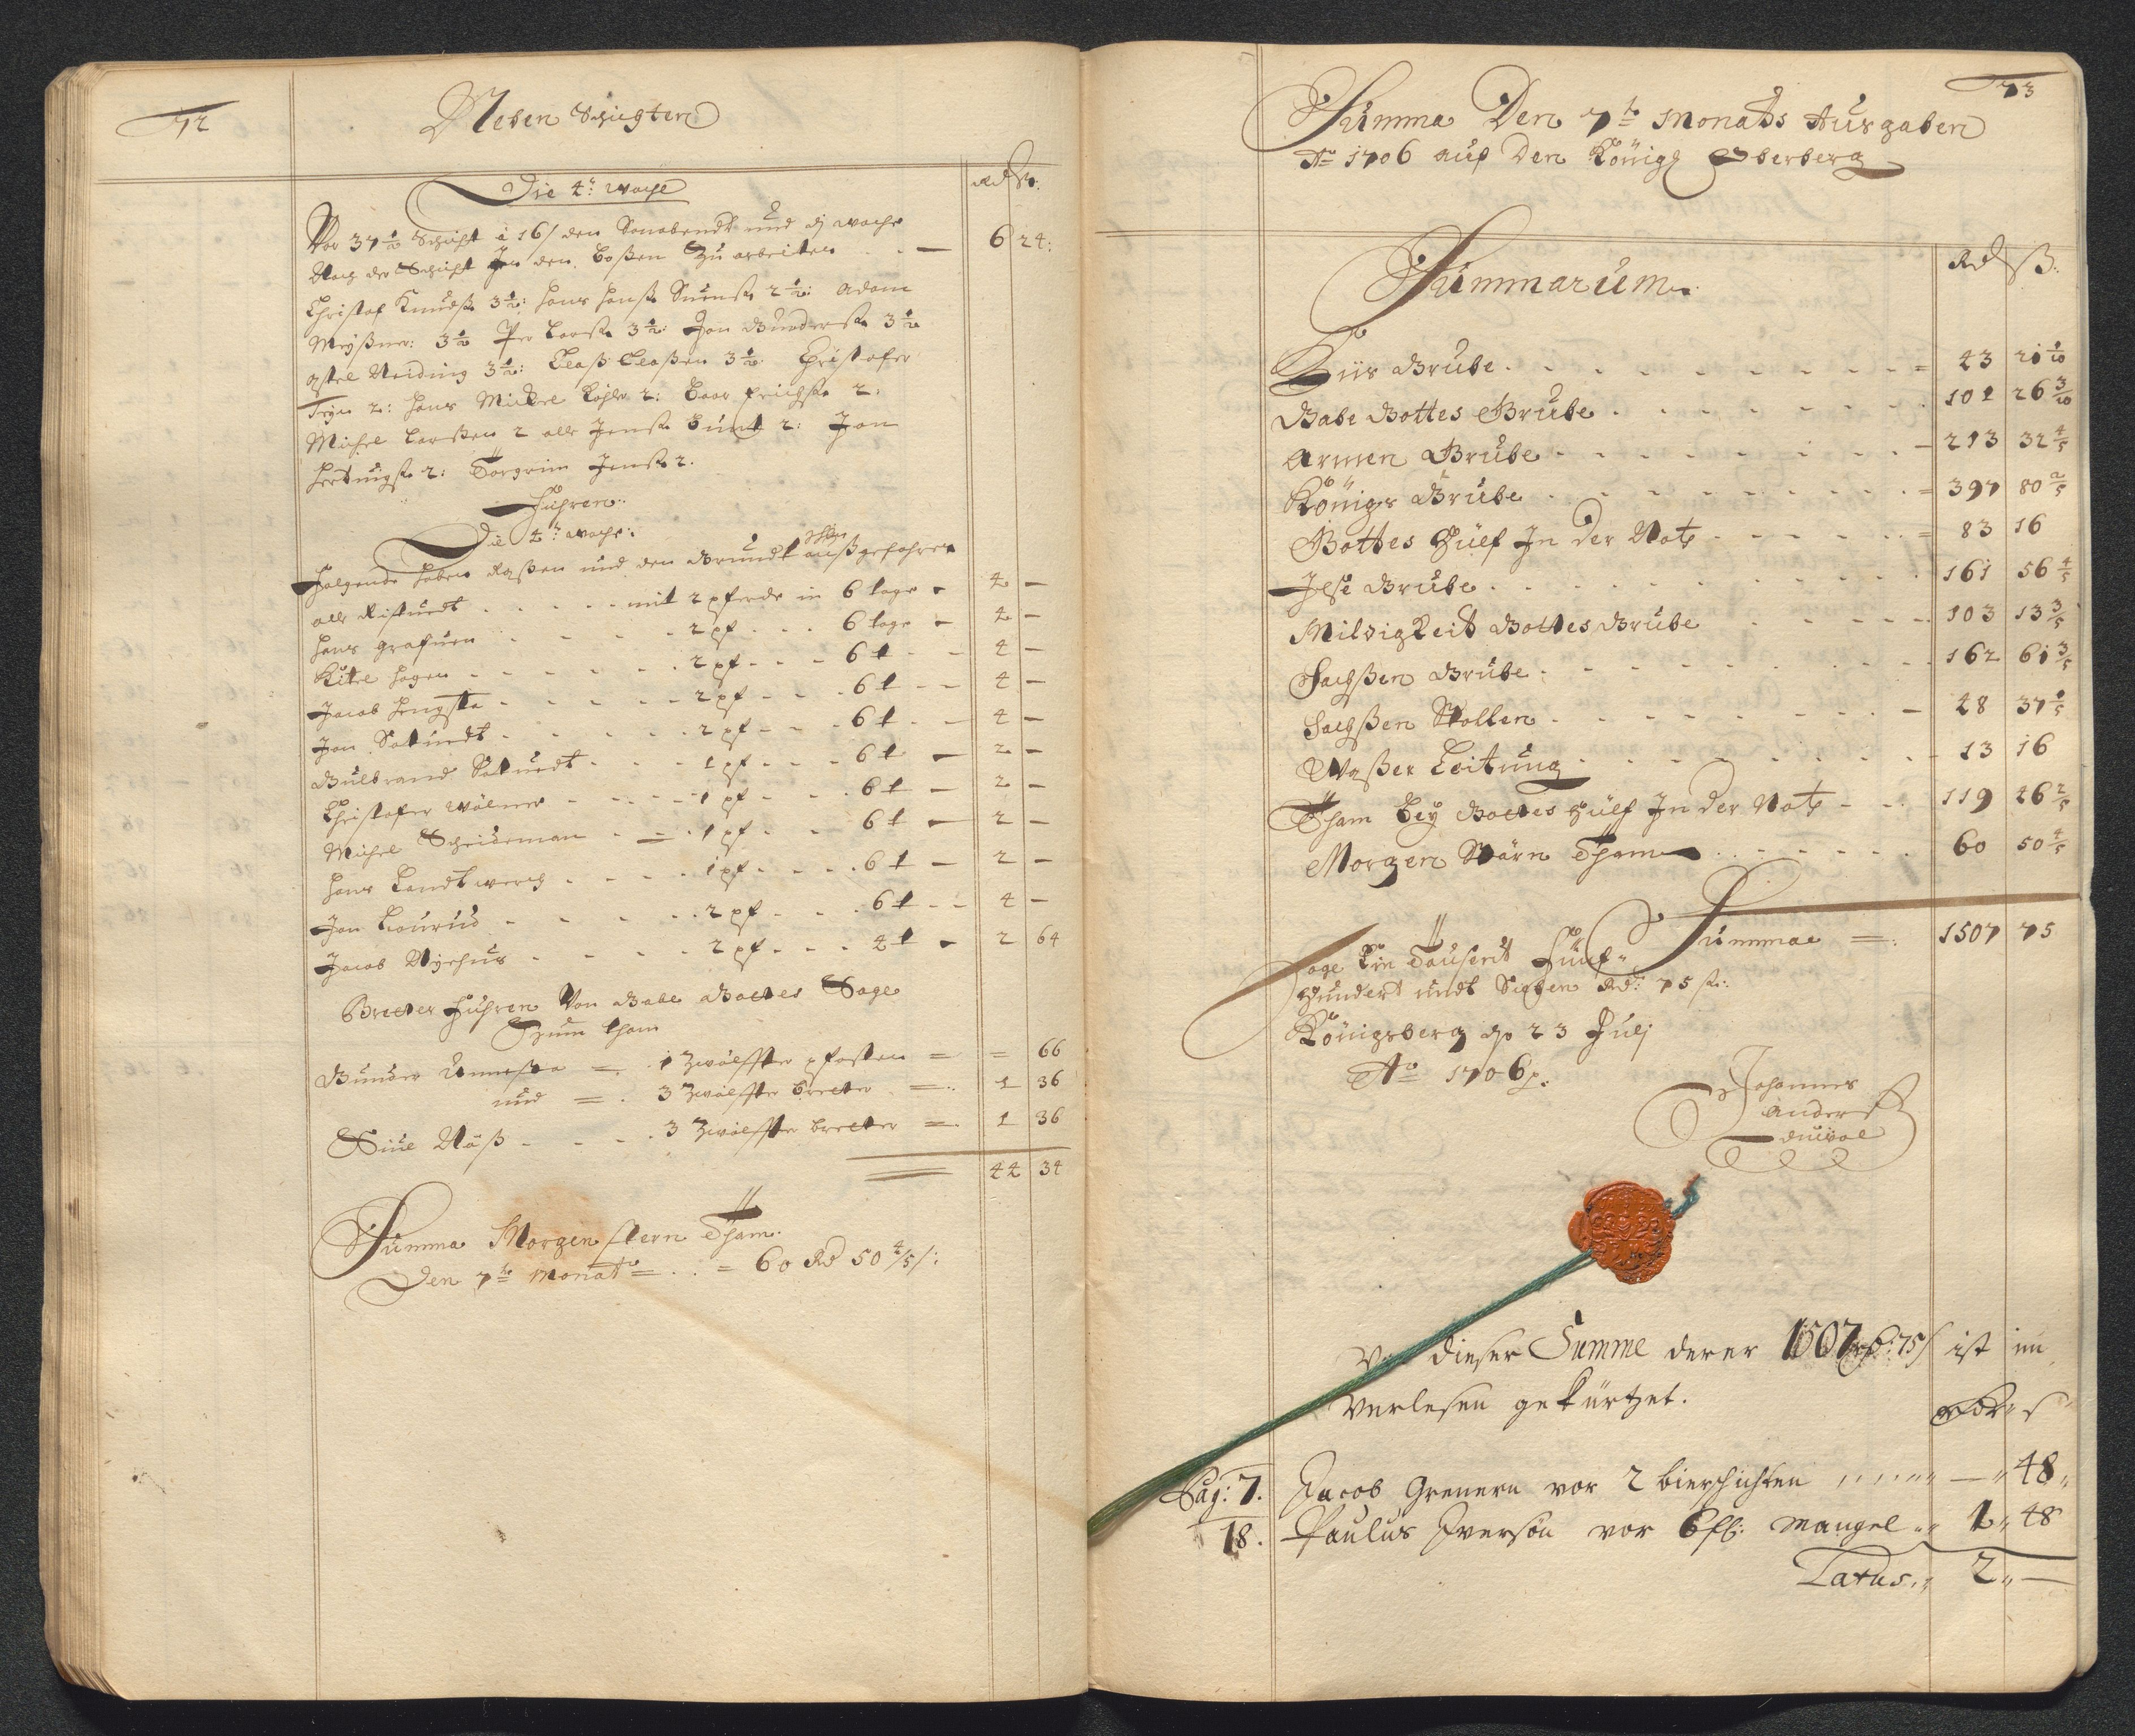 72
Neben Schichten
Rd ß:
Die 4te: Woche
Vor 37 1/2 Schicht à 16/ den Sonabendt und die woche
Nach der Schicht In den Boßen Zu arbeiten - 6 24:
Christof Knudß 3 1/2: Hans Hanß 2 1/2: Adam
Meyßner: 3 1/2 Per Larß 3 1/2: Jon Gunderß 3 1/2
Neiding 3 1/2: Claß Claßen 3 1/2: Christofer
2: Hans Mickel Köhler 2: Lars Erichß 2:
Michel Larßen 2 olle Jenß 2: Jon
2: Torgrim Jenß 2.
Fuhren:
Die 4te: woche:
Folgende haben und den Grundt außgefahren
olle . . . . . mit 2 pferde in 6 tage - 4 -
Hans . . . . . 2 pf . . . 6 tage - 4 -
Kittel Hagen - - - - - 2 pf - - - 6 t - - 4 -
Jacob - - - - - 2 pf - - - 6 t - - 4 -
Jon - - - - - 2 pf - - - 6 t - - 4 -
Gulbrand - - - 1 pf - - - 6 t - 2 -
Christofer Wölner - - - - 1 pf - - - 6 t - 2 -
Michel Scheideman - - - 1 pf - - 6 t - 2 -
Hans Landtwerch - - - - 1 pf - - - 6 t - 2 -
Jon - - - - - 2 pf - - - 6 t - - 4 -
Jacob Nyehus - - - - 2 pf - - - 4 t - 2 64
Bretter Fuhren Von Gabe Gottes Sage
Zum tham
Gunder = . 1 Zwölffter pfosten = = 66
und = . 3 Zwölffter bretter = 1 36
Siul Näß - - - - 3 Zwölffter bretter = 1 36
44 34
Summa Morgenstern Tham.
Den 7te Monat = . . = 60 Rd 50 4/5 /:
73
Summa Den 7te Monats Ausgaben
Ao 1706 auf Den Königl Oberberg
Summarum
Rd ß:
Grube - - - - - - - - = 43 21 1/10
Gabe Gottes Grube - - - - - - - 101 26 3/10
Armen Grube - - - - - - - - 213 32 4/5
Königs Grube - - - - - - - - = 397 80 2/5
Gottes Hülf In Der Noth - - - - - = 83 16
Jlse Grube - - - - - - - - - 161 56 4/5
Mildigkeit Gottes Grube - - - - - 103 13 3/5
Sachßen Grube - - - - - - - - 162 61 3/5
Sachßen Stollen - - - - - - - - 48 37 1/5
Waßer Leitung - - - - - - - - 13 16
Tham bey Gottes Hülf In Der Noth - - 119 46 2/5
Morgen Stärn Tham - - - - - - 60 50 4/5
Summae = 1507 75
Sage Ein Tausent Fünf-
Hundert undt Sieben Rd: 75 ß:
Königsberg d. 23 Julj
Ao 1706.
Johannes
Anderß
Von dieser Summe derer 1507 rd: 75 ß ist im
Verlesen gekürtzet.
Pag: 7. Jacob Grenern vor 2 bierschichten - " 48 "
18. Paulus Iversøn vor 6 ß: Mangel " 1 " 48
Latus " 2 " -